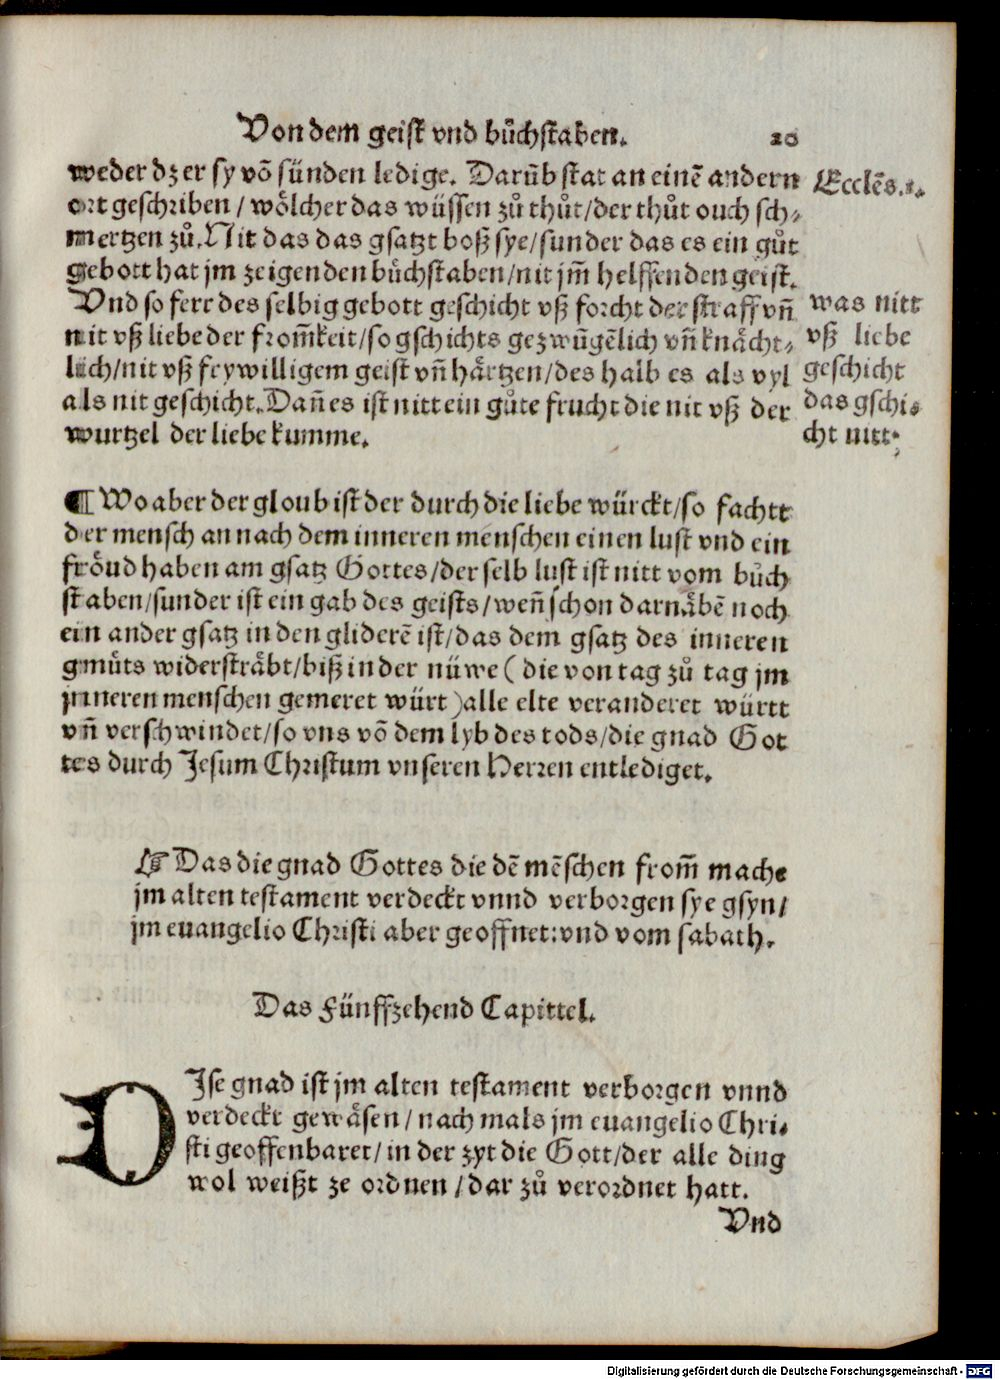 Von dem geist vnd bůchstaben. 20
weder dz er sy võ sünden ledige. Darũb stat an einẽ andern
ort geschriben / wölcher das wüssen zů thůt/der thůt ouch sch⸗
mertzen zů. Nit das das gsatzt boß sye/sunder das es ein gůt
gebott hat jm zeigenden bůchstaben/nit jm̃ helffenden geist.
Vnd so ferr des selbig gebott geschicht vß forcht der straff vñ
nit vß liebe der from̃keit/so gschichts gezwũgẽlich vñ knächt⸗
lich/nit vß feywilligem geist vñ härtzen/des halb es als vyl
als nit geschicht. Dañ es ist nitt ein gůte frucht die nit vß der
wurtzel der liebe kumme.
Ecclẽs.1.
was nitt
vß liebe
geschicht
das gschi⸗
cht nitt.
¶ Wo aber der gloub ist der durch die liebe würckt/so fachtt
der mensch an nach dem inneren menschen einen lust vnd ein
fröud haben am gsatz Gottes/der selb lust ist nitt vom bůch
staben/sunder ist ein gab des geists/weñ schon darnäbẽ noch
ein ander gsatz in den gliderẽ ist/das dem gsatz des inneren
gmůts widersträbt/biß in der nüwe ( die von tag zů tag jm
jnneren menschen gemeret würt )alle elte veranderet württ
vñ verschwindet/so vns võ dem lyb des tods/die gnad Got
tes durch Jesum Christum vnseren Herren entlediget.
☞ Das die gnad Gottes die dẽ mẽschen from̃ mache
jm alten testament verdeckt vnnd verborgen sye gsyn/
jm euangelio Christi aber geoffnet: vnd vom sabath.
Das Fünffzehend Capittel.
DIse gnad ist jm alten testament verborgen vnnd
verdeckt gewäsen / nach mals jm euangelio Chri⸗
sti geoffenbaret/ in der zyt die Gott/der alle ding
wol weißt ze ordnen / dar zů verordnet hatt.
Vnd
Digitalisierung gefördert durch die Deutsche Forschungsgemeinschaft - DFG